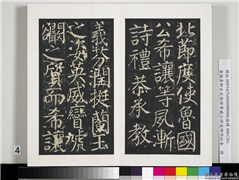 北節度使魯國
公希讓等夙漸
詩禮恭承教
義芬潤挺蘭玉
之姿英威奮虓
闞之質而希讓
4